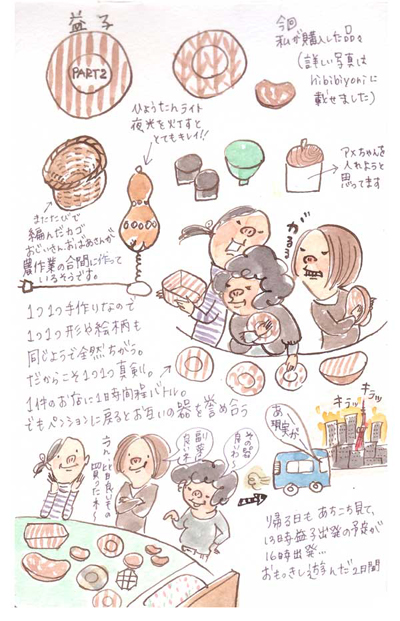 益子
PART2
今回
私が購入した品々
(詳しい写真は
hibibiyoriに
載せました)
ひょうたんライト
夜光を灯すと
とてもキレイ!!
アメちゃんを
入れようと
思ってます
またたびで
編んだカゴ
おじいさんおばあさんが
農作業の合間に作って
いるそうです。
がるる
1つ1つ手作りなので
1つ1つ形や絵柄も
同じようで全然ちがう。
だからこそ1つ1つ真剣。
1件のお店に1時間程バトル。
でもペンションに戻るとお互いの器を誉め合う
うん、
買ったネ〜
副菜に
良いわネ
その器
良いわ〜
あ、
現実が、
キラッ
キラッ
帰る日も あちこち見て、
13時益子出発の予定が
16時出発…
おもっきし遊んだ2日間